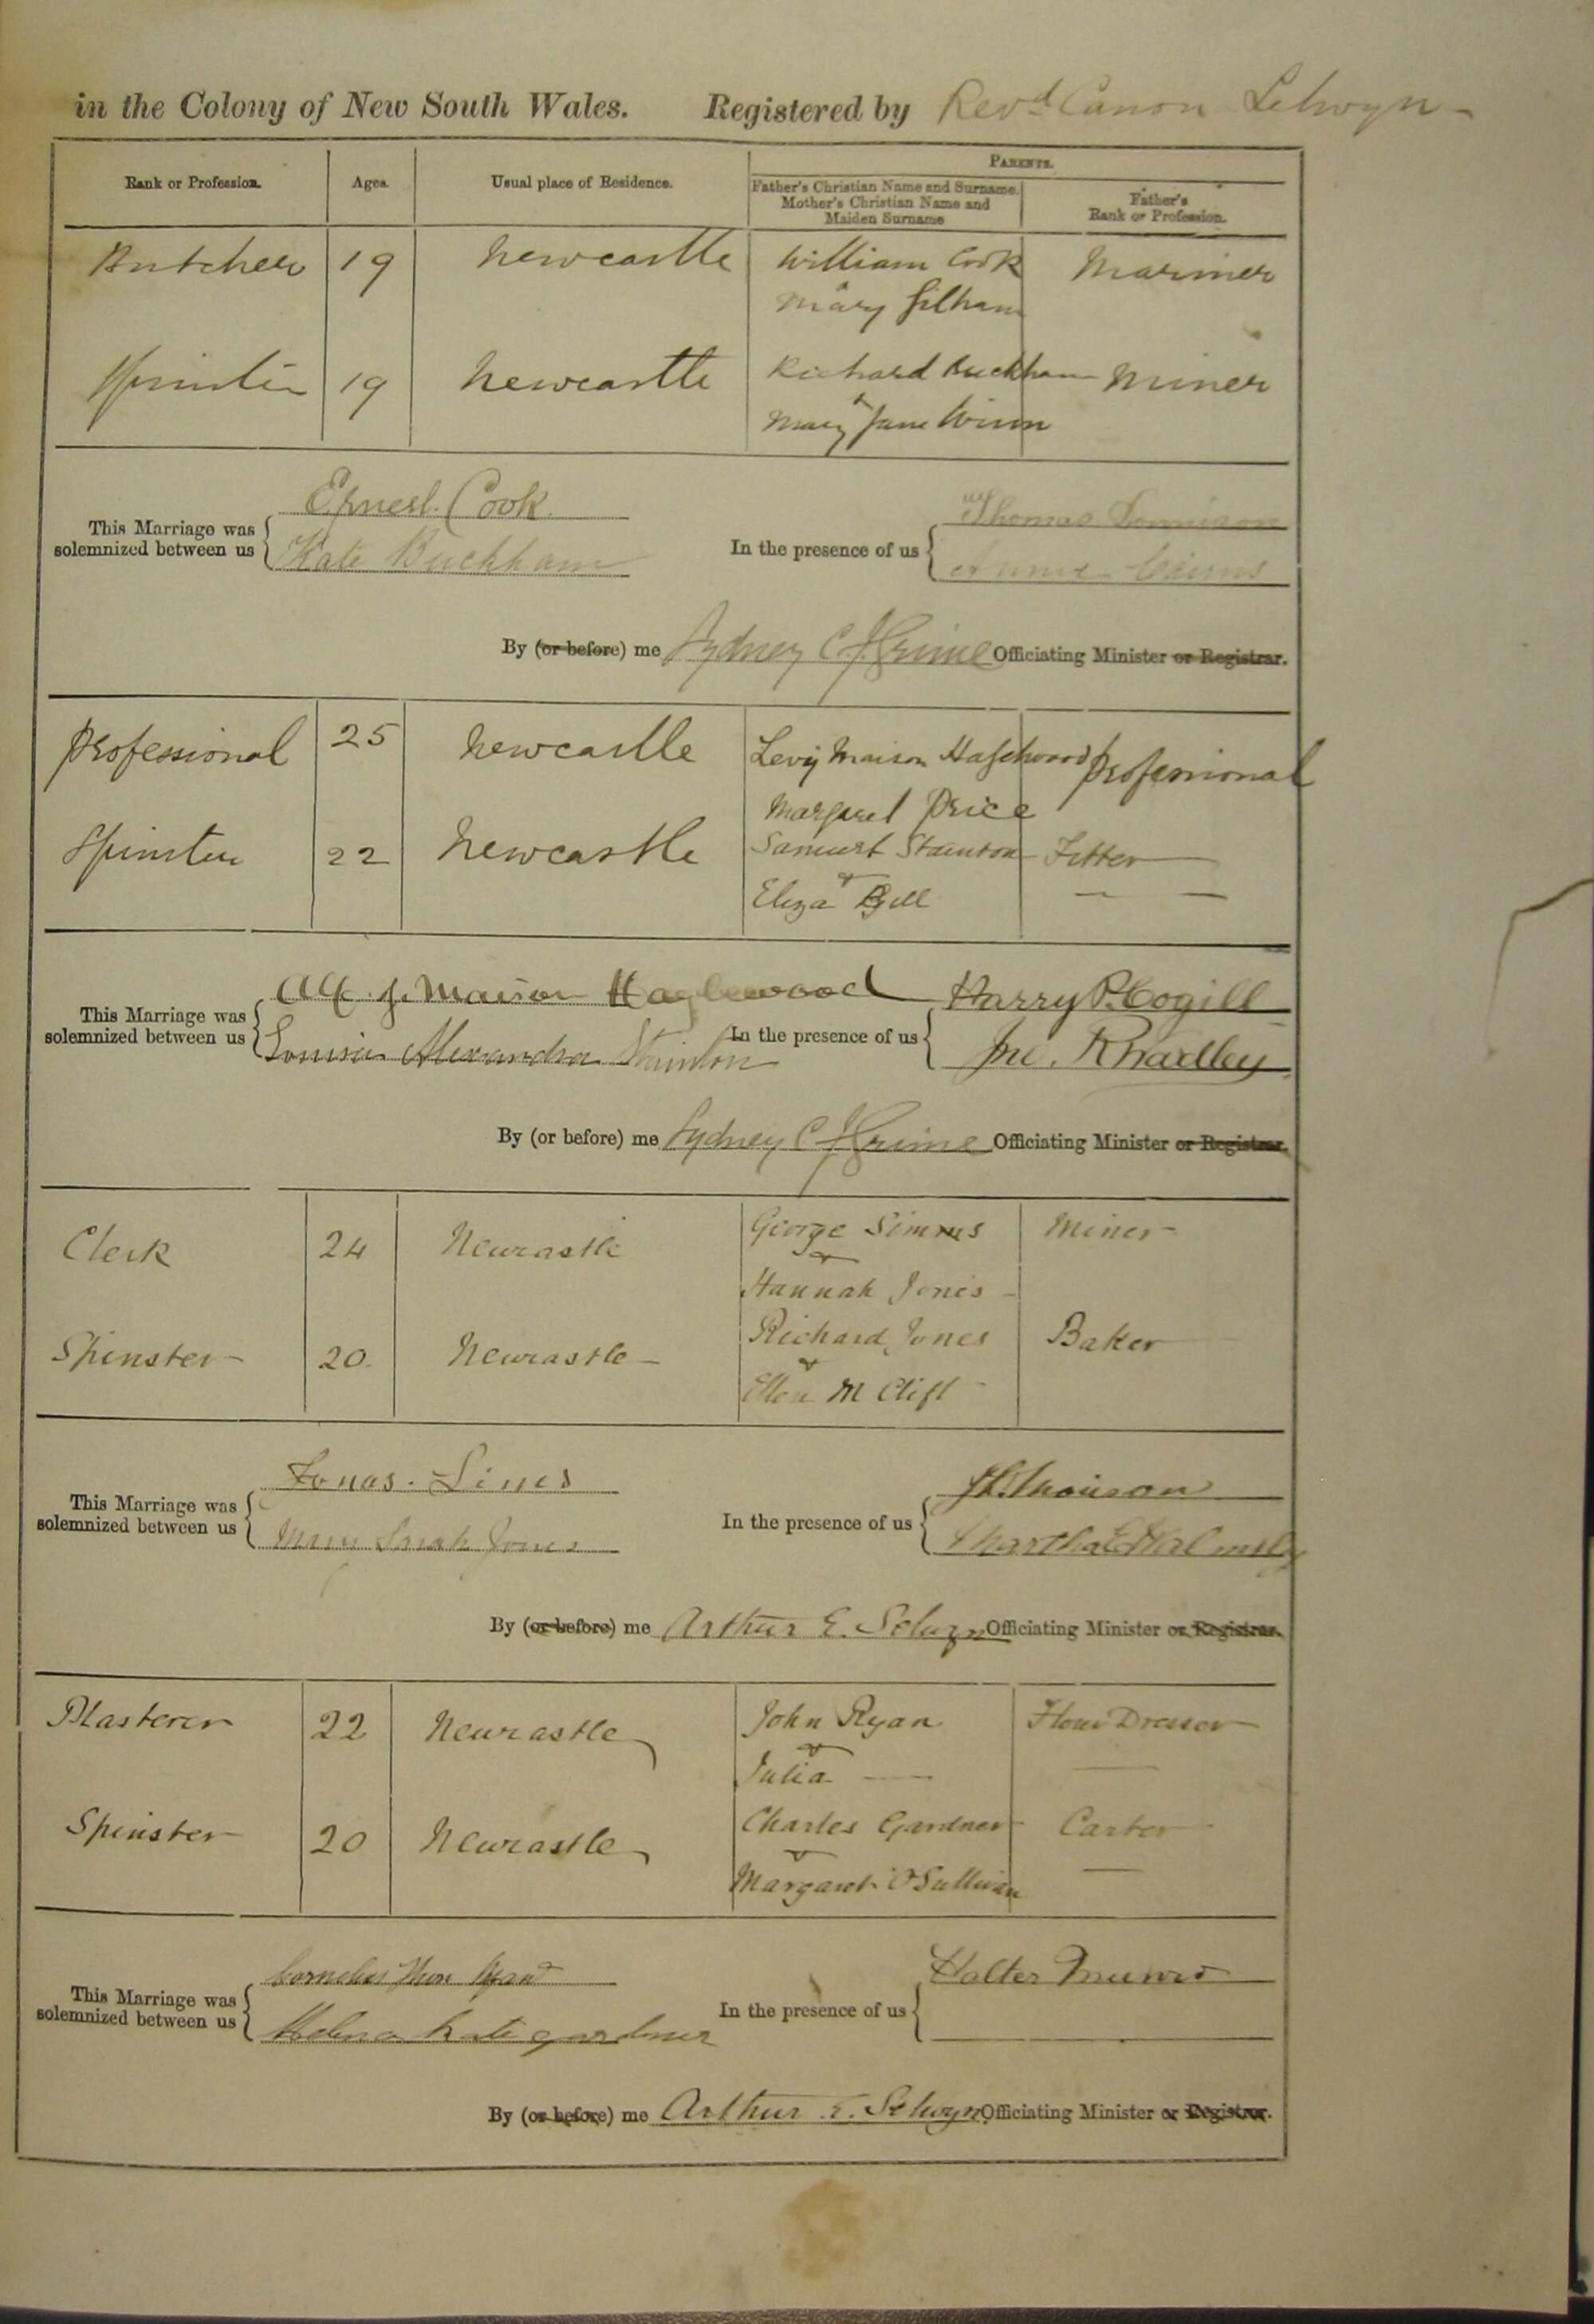 in the Colony of New South Wales. Registered by Revd Canon Selwyn
PARENTS.
Rank or Profession. Ages. Usual place of Residence. Father's Christian Name and Surname. Mother's Christian Name and Maiden Surname Father's Rank or Profession.
Butcher 19 Newcastle William Cook Mariner
& Mary Gilham
Spinster 19 Newcastle Richard Buckham Miner
& Mary Jane Winn
This Marriage was solemnized between us
Ernest Cook
Kate Buckham
In the presence of us
Thomas
Annie Cairns
By (or before) me Sydney C J Grime Officiating Minister or Registrar.
Professional 25 Newcastle Levy Maison Haslewood Professional
Margaret Price
Spinster 22 Newcastle Samuel Stainton Fitter
& Eliza Gill
This Marriage was solemnized between us
Alf. J. Maison Haslewood
Louisa Alexandra Stainton
In the presence of us
Harry P. Cogill
Jno.
By (or before) me Sydney C J Grime Officiating Minister or Registrar.
Clerk 24 Newcastle George Simms Miner
& Hannah Jones
Spinster 20. Newcastle Richard Jones Baker
& Ellen M Clift
This Marriage was solemnized between us
Jonas. Sims
Mary Sarah Jones
In the presence of us
Martha E Walmsley
By (or before) me Arthur E. Selwyn Officiating Minister or Registrar.
Plasterer 22 Newcastle John Ryan Flour Dresser
& Julia —
Spinster 20 Newcastle Charles Gardner Carter
& Margaret O'Sullivan
This Marriage was solemnized between us
Cornelius Ryan
Helena Kate gardner
In the presence of us
Walter Munro
By (or before) me Arthur E. Selwyn Officiating Minister or Registrar.